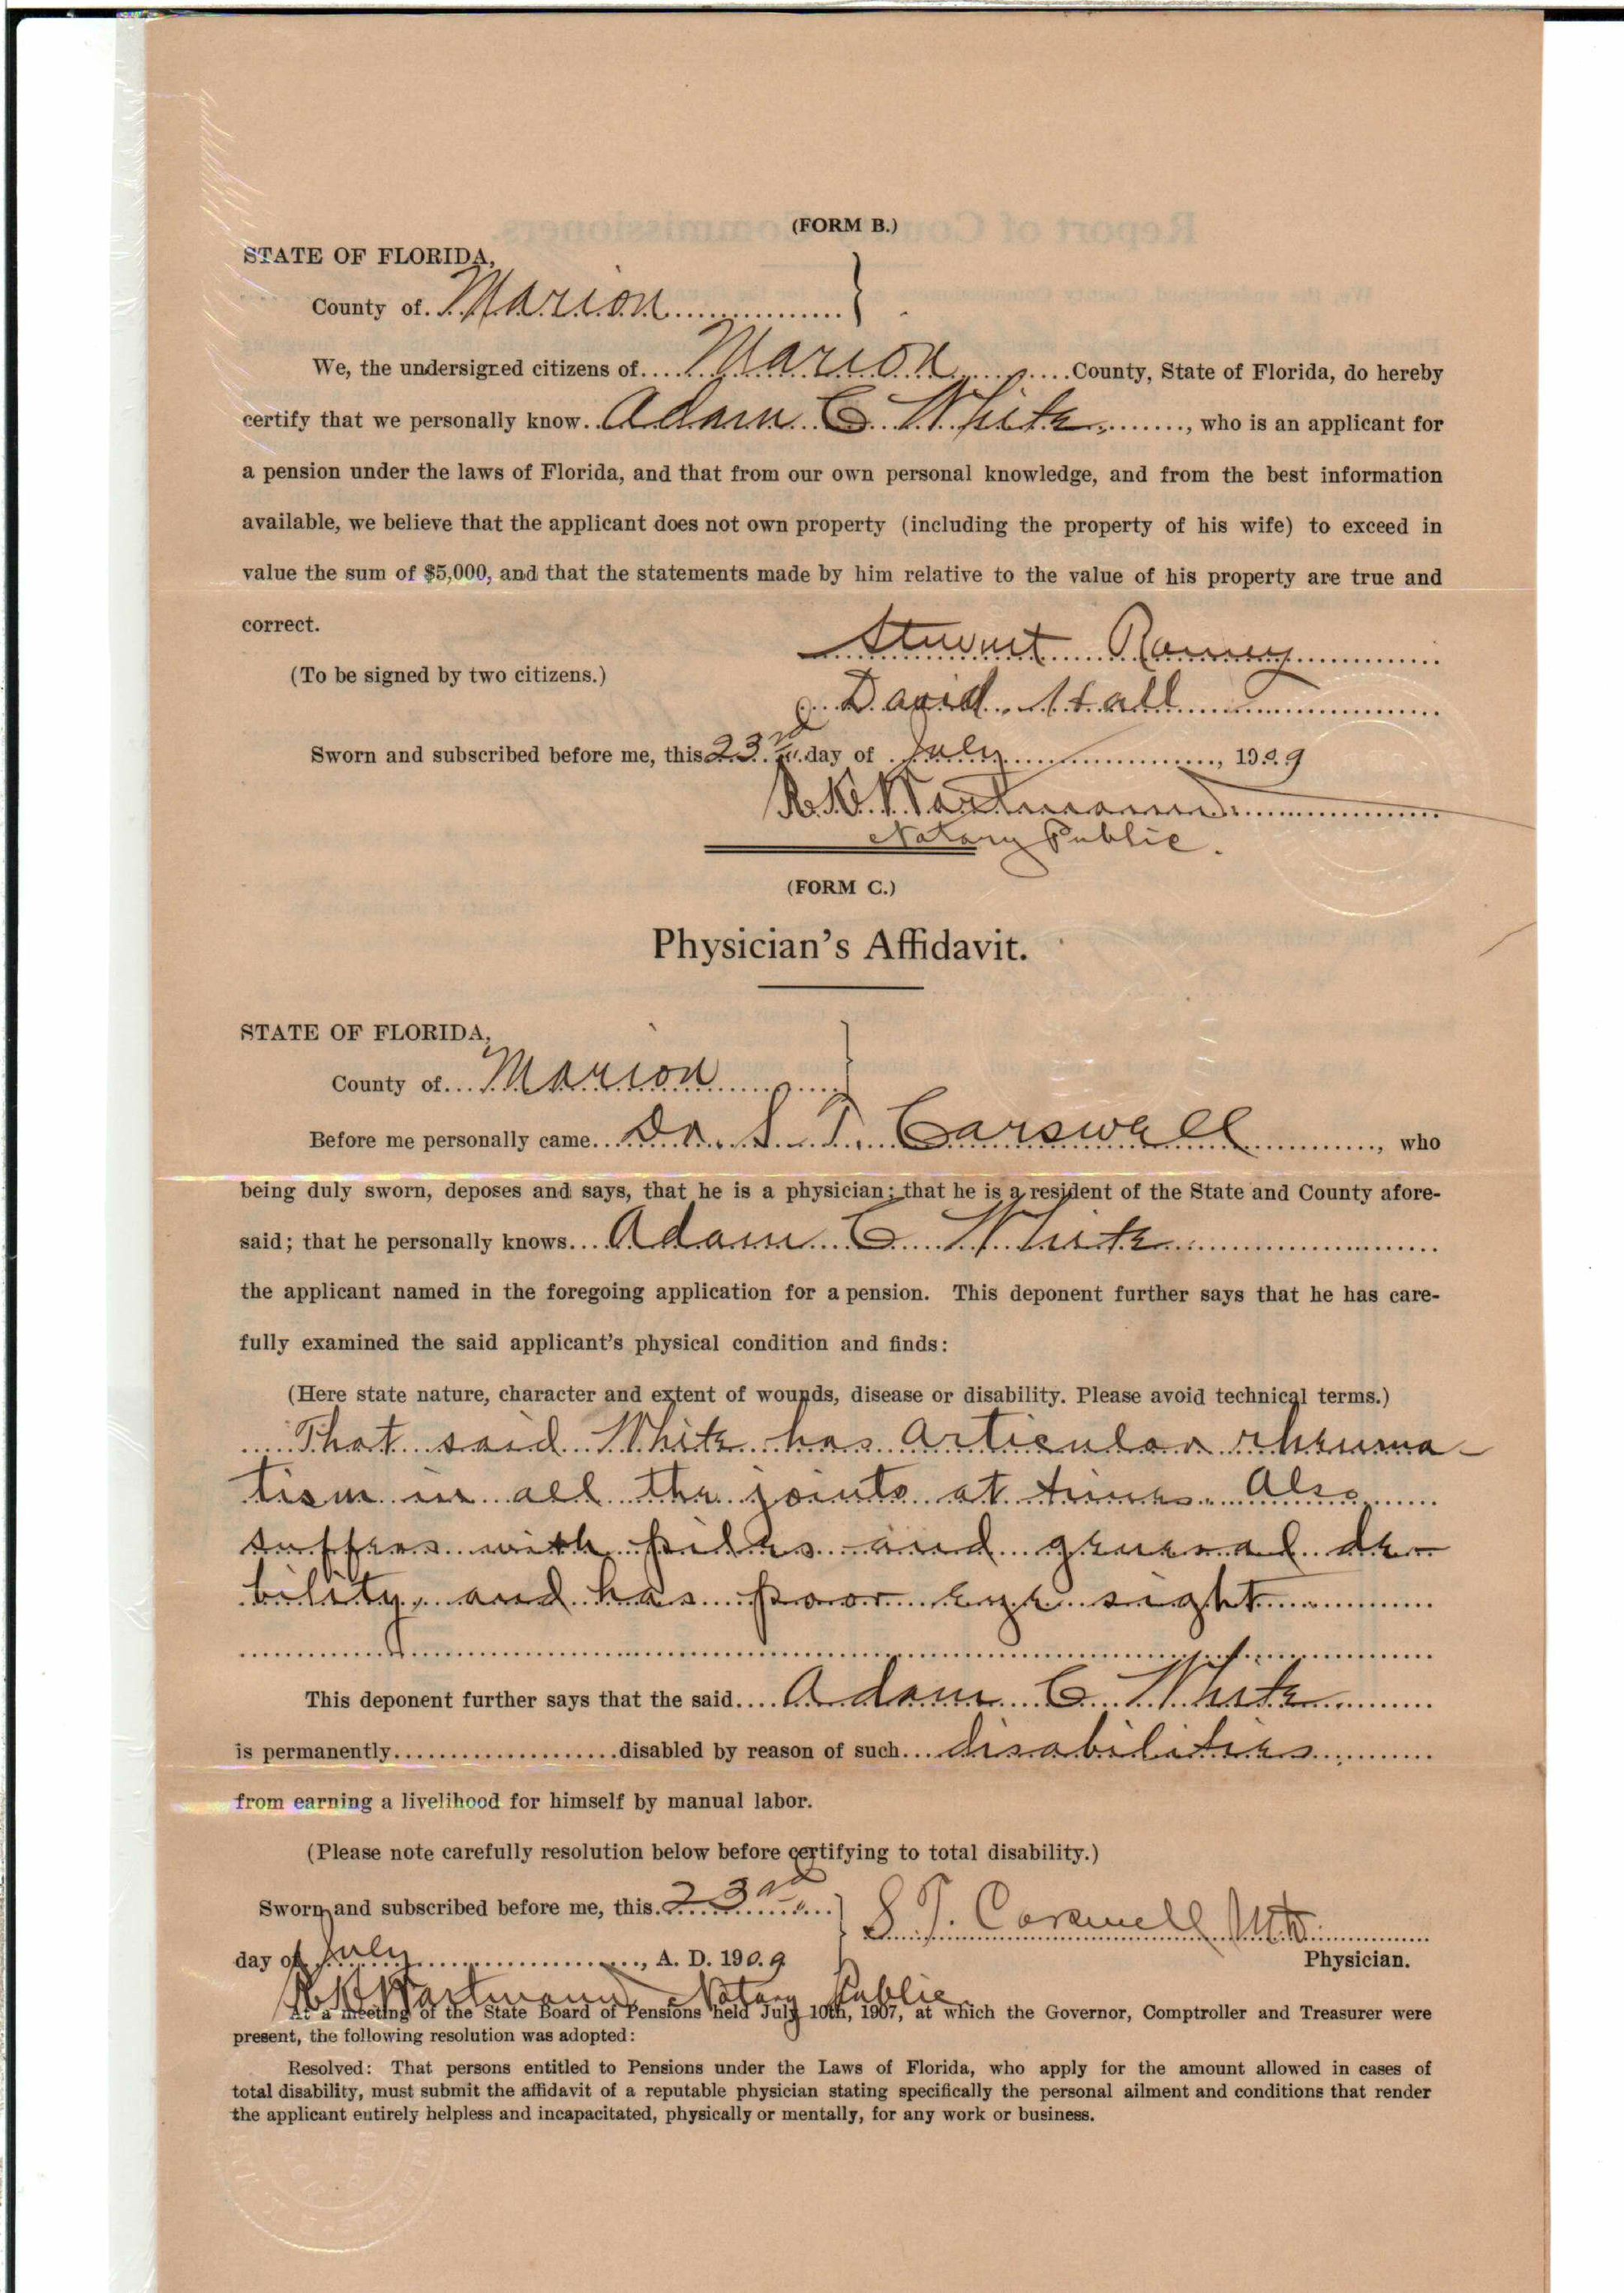 (FORM B.)
STATE OF FLORIDA,
County of Marion
We, the undersigned citizens of Marion County, State of Florida, do hereby
certify that we personally know Adam C White, who is an applicant for
a pension under the laws of Florida, and that from our own personal knowledge, and from the best information
available, we believe that the applicant does not own property (including the property of his wife) to exceed in
value the sum of $5,000, and that the statements made by him relative to the value of his property are true and
correct.
Stewart Ramey
(To be signed by two citizens.)
David Hall
Sworn and subscribed before me, this 23rd day of July, 1909
Notary Public.
(FORM C.)
Physician's Affidavit.
STATE OF FLORIDA,
County of Marion
Before me personally came Dr. S. T. Carswell, who
being duly sworn, deposes and says, that he is a physician; that he is a resident of the State and County afore-
said; that he personally knows Adam C White
the applicant named in the foregoing application for a pension. This deponent further says that he has care-
fully examined the said applicant's physical condition and finds:
(Here state nature, character and extent of wounds, disease or disability. Please avoid technical terms.)
That said White has articular rheuma-
tism in all the joints at times. Also
suffers with piles and general de-
bility, and has poor eye sight
This deponent further says that the said Adam C White
is permanently disabled by reason of such disabilities
from earning a livelihood for himself by manual labor.
(Please note carefully resolution below before certifying to total disability.)
Sworn and subscribed before me, this 23rd
S. T. Carswell M.D.
day of July, A. D. 1909
Physician.
Notary Public
At a meeting of the State Board of Pensions held July 10th, 1907, at which the Governor, Comptroller and Treasurer were
present, the following resolution was adopted:
Resolved: That persons entitled to Pensions under the Laws of Florida, who apply for the amount allowed in cases of
total disability, must submit the affidavit of a reputable physician stating specifically the personal ailment and conditions that render
the applicant entirely helpless and incapacitated, physically or mentally, for any work or business.